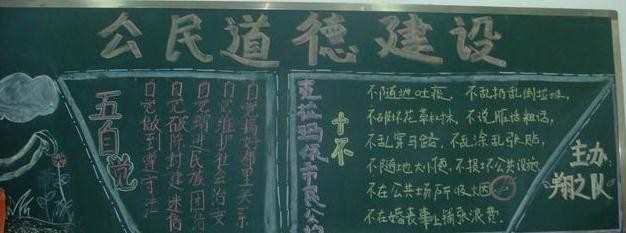 公民道德建设
五自觉
自觉搞好邻里关系
自觉维护社会治安
自觉增进民族团结
自觉破除封建迷信
自觉做到遵守法
克拉玛依市民公约
十不
不随地吐痰，不乱扔乱倒垃圾，
不破坏花草树木，不说脏话粗话，
不乱穿马路，不乱涂乱张贴，
不随地大小便，不损坏公共设施
不在公共场所吸烟
不在婚丧事上铺张浪费。
主办
翔之队